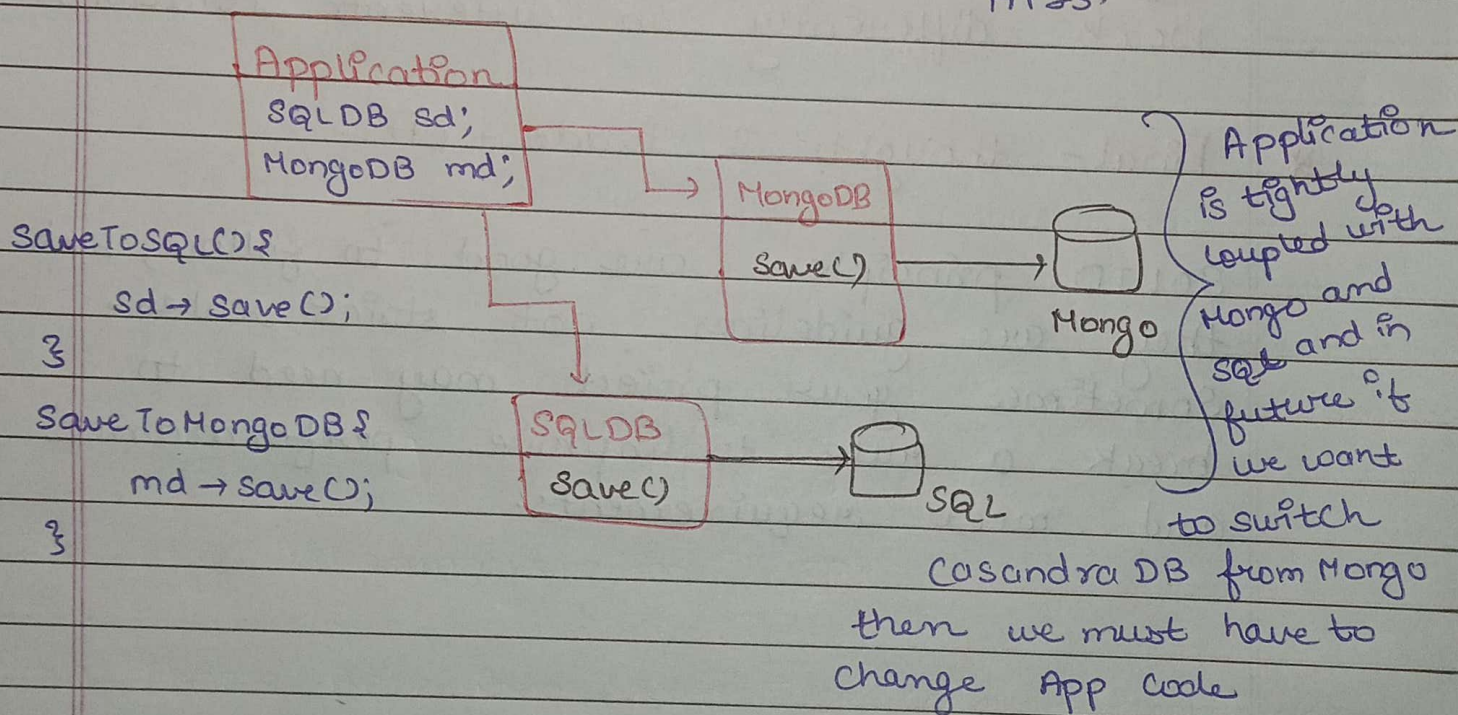 Application
SQLDB sd;
MongoDB md;
SaveToSQL(){
sd → save();
}
Save To MongoDB{
md → save();
}
MongoDB
save()
Mongo
SQLDB
Save()
SQL
Application
is tightly
coupted with
Mongo and
SQL and in
future if
we want
to switch
Casandra DB from Mongo
then we must have to
change App Code